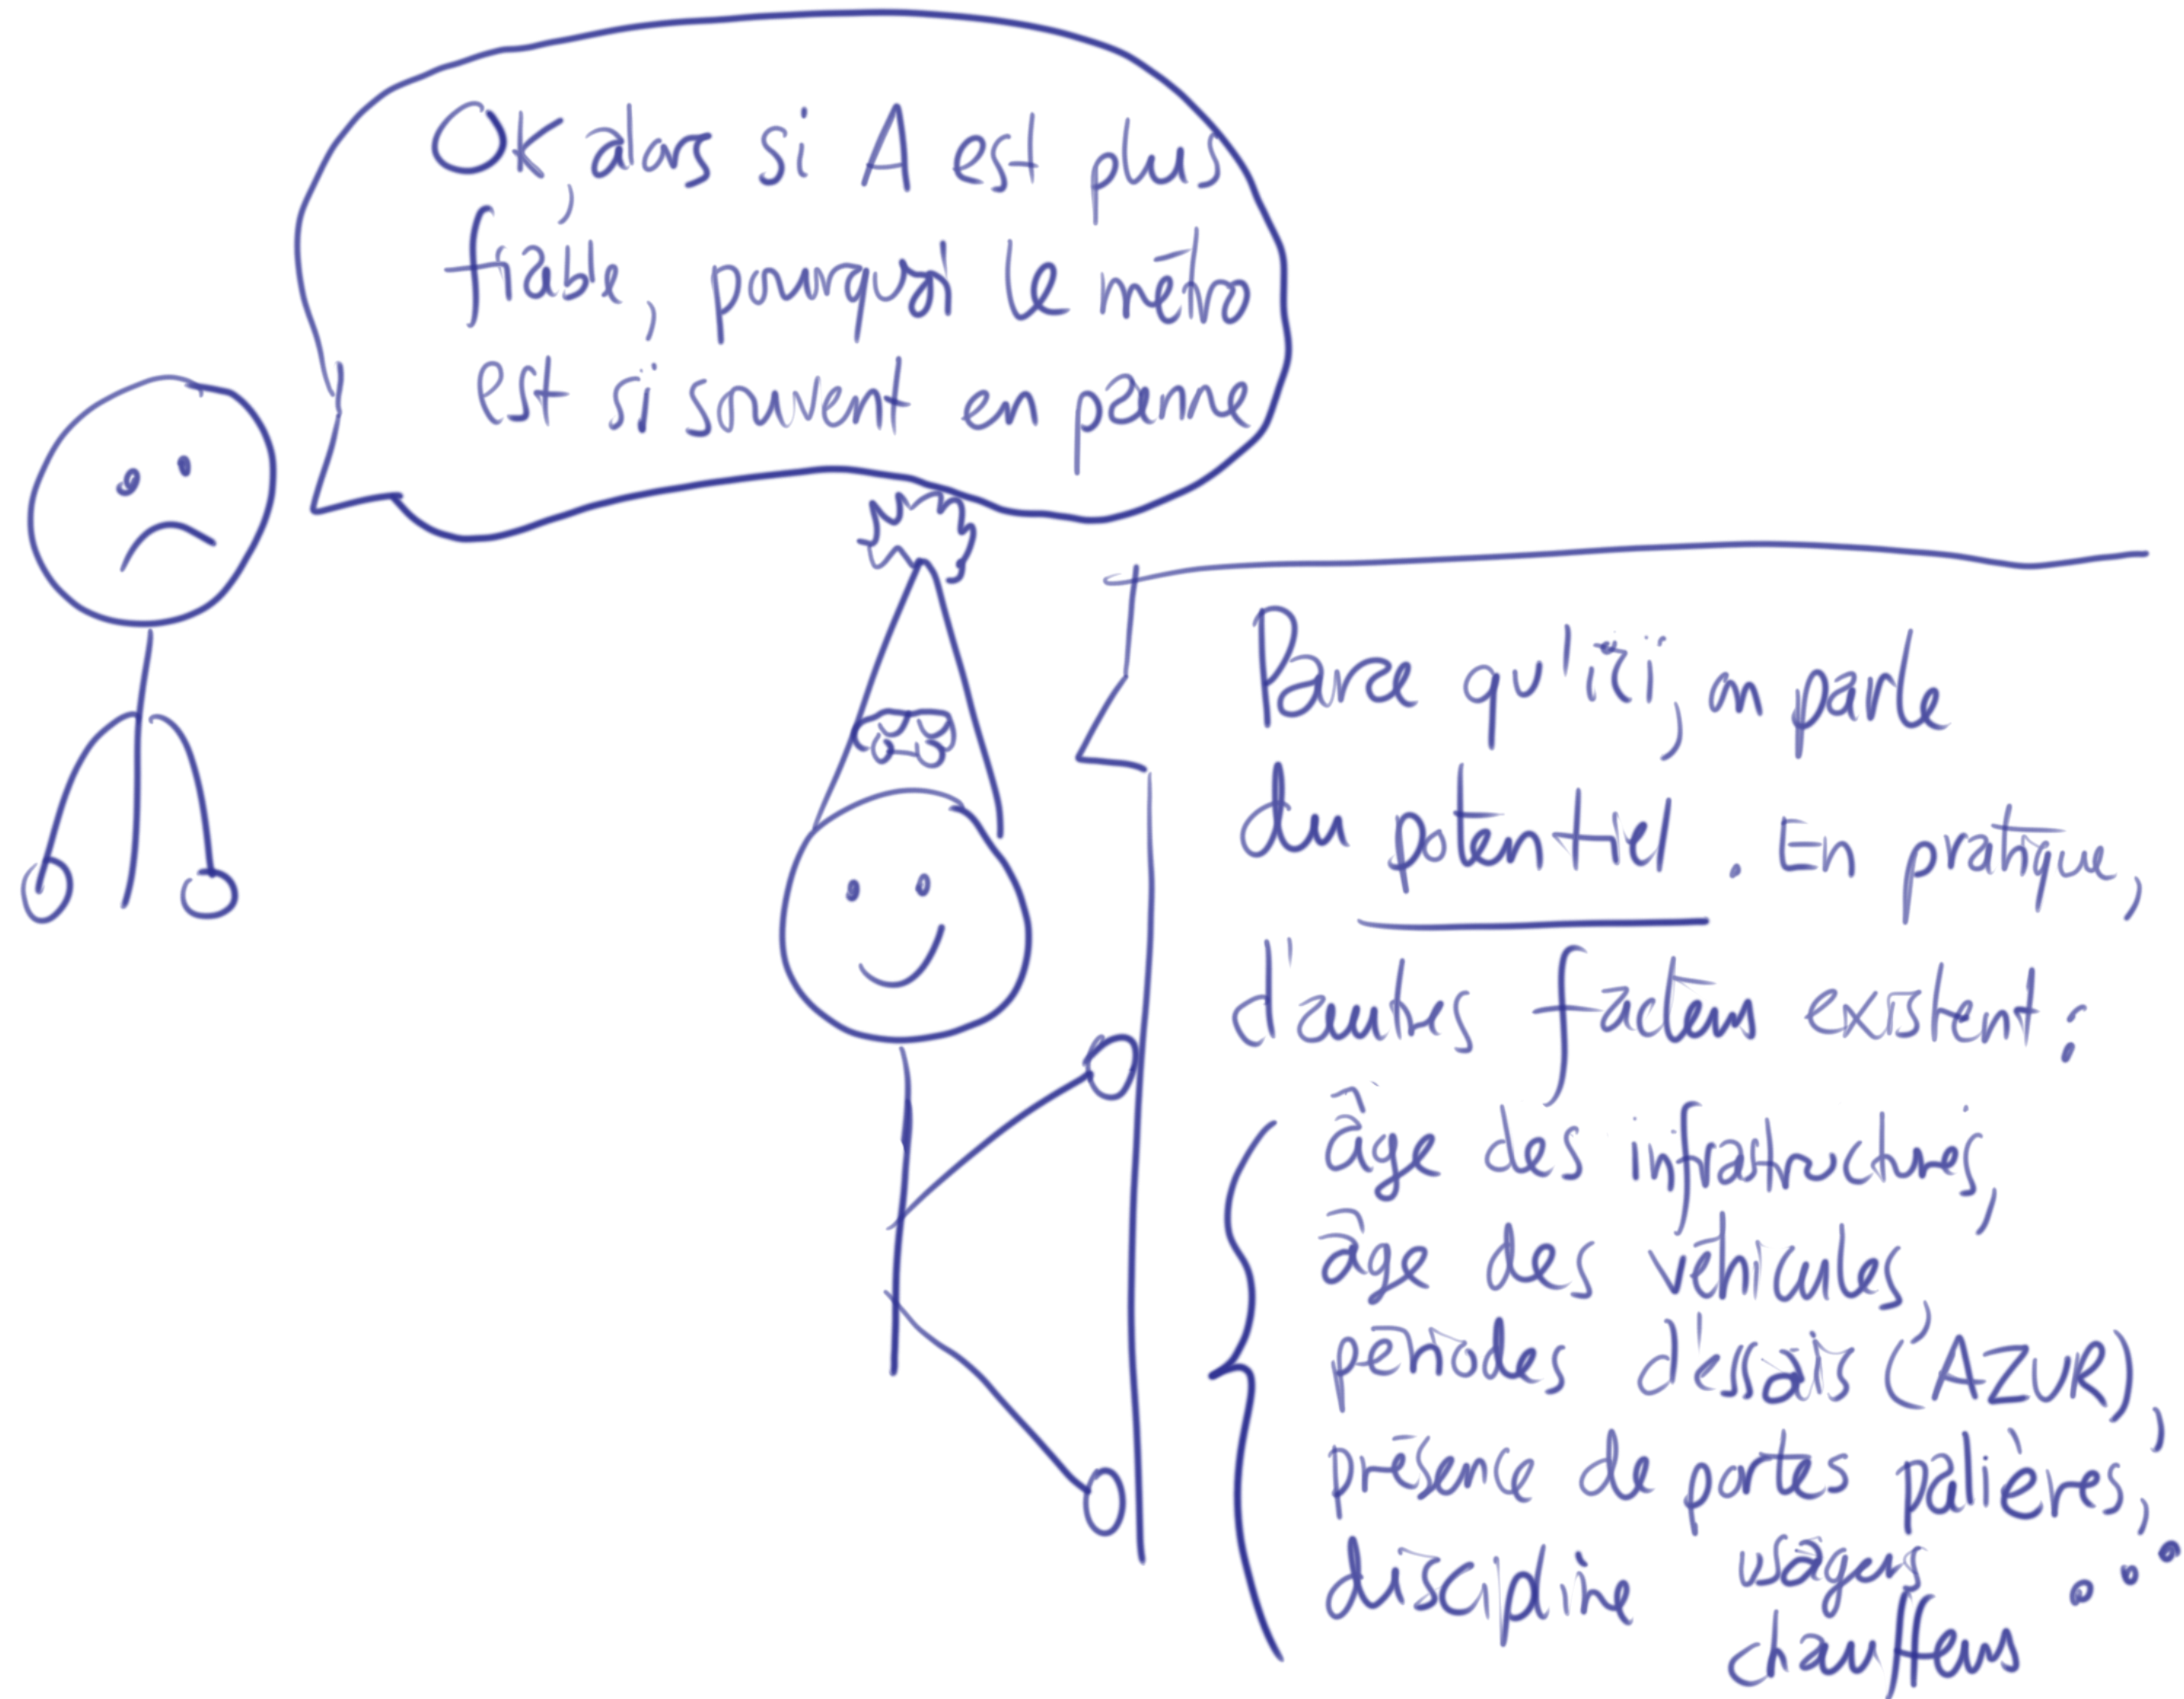 OK, alors si A est plus
fiable, pourquoi le métro
est si souvent en panne
Parce qu'ici, on parle
du potentiel. En pratique,
d'autres facteurs existent :
âge des infrastructures,
âge des véhicules,
périodes d'essais (AZUR),
présence de portes palières,
discipline usagers ...
chauffeurs